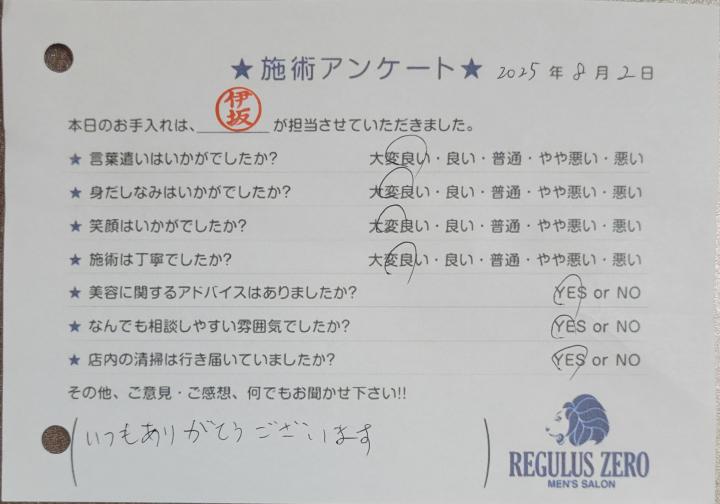 ★施術アンケート★ 2025年8月2日
本日のお手入れは、伊坂が担当させていただきました。
★ 言葉遣いはいかがでしたか? 大変良い・良い・普通・やや悪い・悪い
★ 身だしなみはいかがでしたか? 大変良い・良い・普通・やや悪い・悪い
★ 笑顔はいかがでしたか? 大変良い・良い・普通・やや悪い・悪い
★ 施術は丁寧でしたか? 大変良い・良い・普通・やや悪い・悪い
★ 美容に関するアドバイスはありましたか? YES or NO
★ なんでも相談しやすい雰囲気でしたか? YES or NO
★ 店内の清掃は行き届いていましたか? YES or NO
その他、ご意見・ご感想、何でもお聞かせ下さい!!
(いつもありがとうございます)
REGULUS ZERO
MEN'S SALON